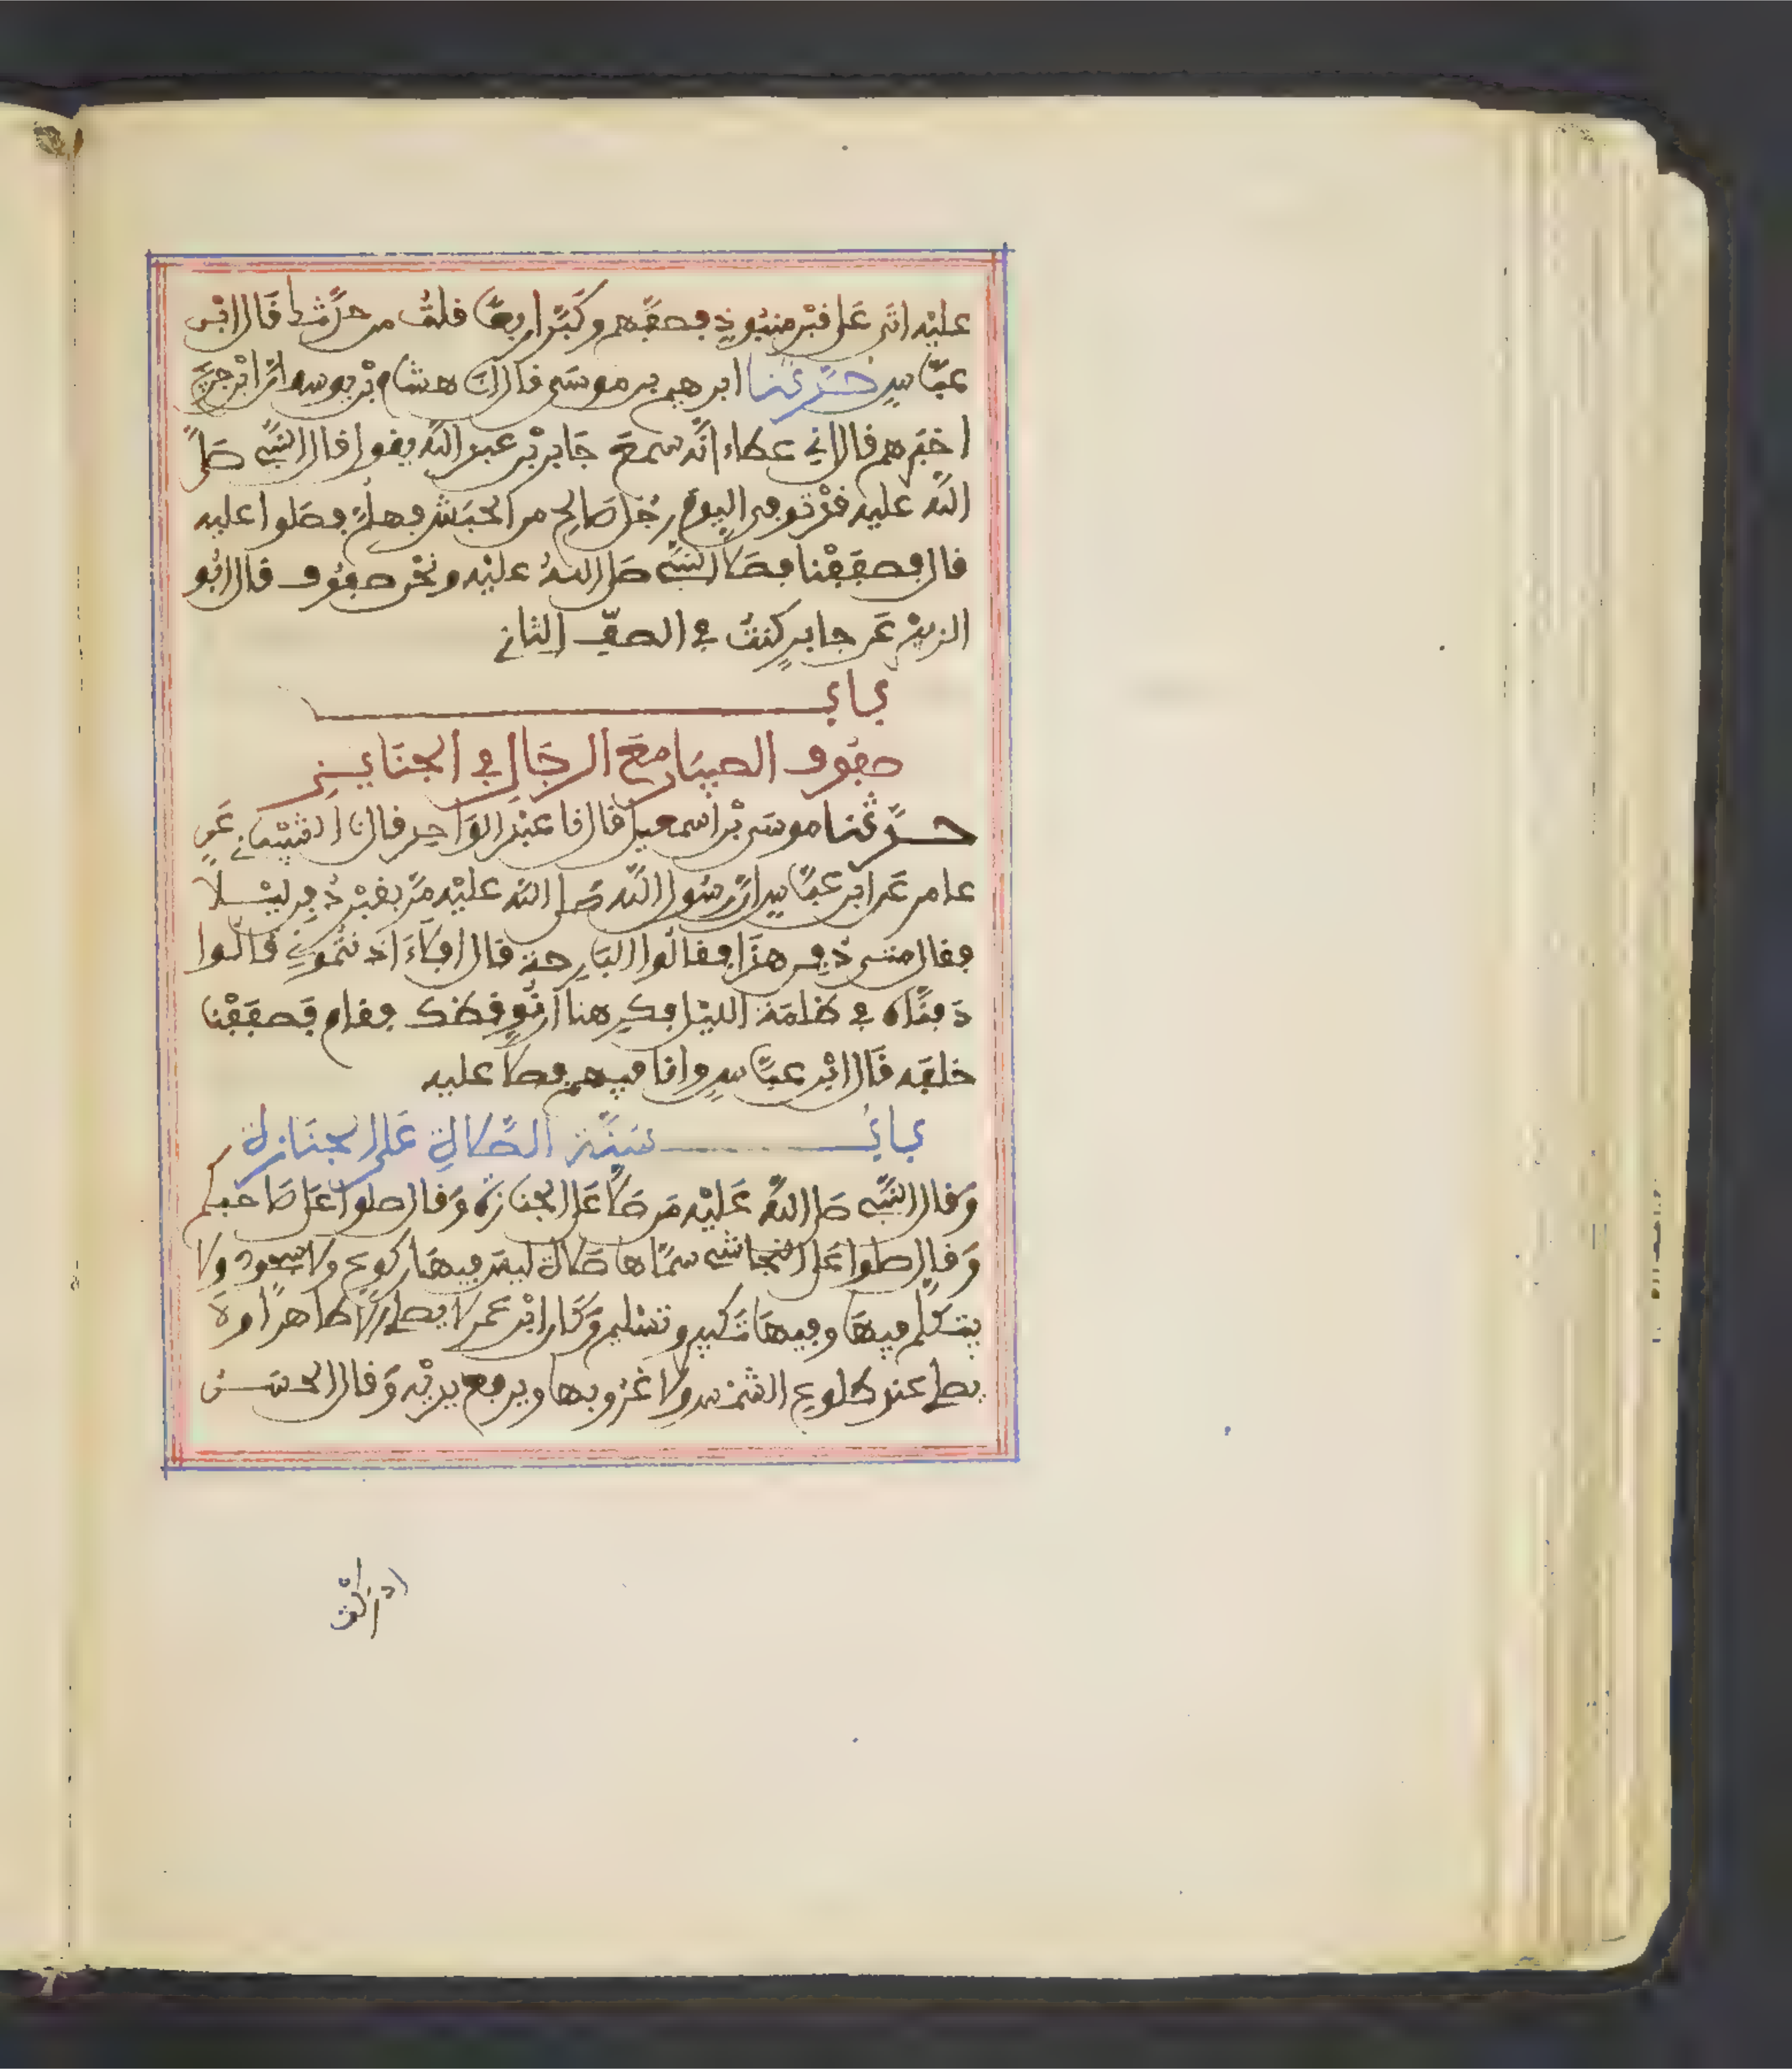 عليه اتى على قبر منبوذ فصفهم وكبر اربعا قلت من حدثك قال ابن
عباس حدثنا ابرهيم بن موسى قال انا هشام بن يوسف ان ابن جريج
اخبرهم قال اني عطاء انه سمع جابر بن عبد الله يقول قال النبي صلى
الله عليه قد توفي اليوم رجل صالح من الحبش فهلم فصلوا عليه
قال فصففنا فصلى النبي صلى الله عليه ونحن صفوف قال ابو
الزبير عن جابر كنت في الصف الثاني
باب
صفوف الصبيان مع الرجال في الجنايز
حدثنا موسى بن اسمعيل قال نا عبد الواحد قال نا الشيباني عن
عامر عن ابن عباس ان رسول الله صلى الله عليه مر بقبر دفن ليلا
فقال متى دفن هذا فقالوا البارحة قال افلاء اذنتموني قالوا
دفناه في ظلمة الليل فكرهنا ان نوقظك فقام فصففنا
خلفه قال ابن عباس وانا فيهم فصلى عليه
باب سنة الصلاة على الجنازة
وقال النبي صلى الله عليه من صلى على الجنازة وقال صلوا على صاحبكم
وقال صلوا على النجاشي سماها صلاة ليس فيها ركوع ولا سجود ولا
يتكلم فيها وفيها تكبير وتسليم وكان ابن عمر لا يصلي الا طاهرا ولا
يصلي عند طلوع الشمس ولا غروبها ويرفع يديه وقال الحسن
ادركت